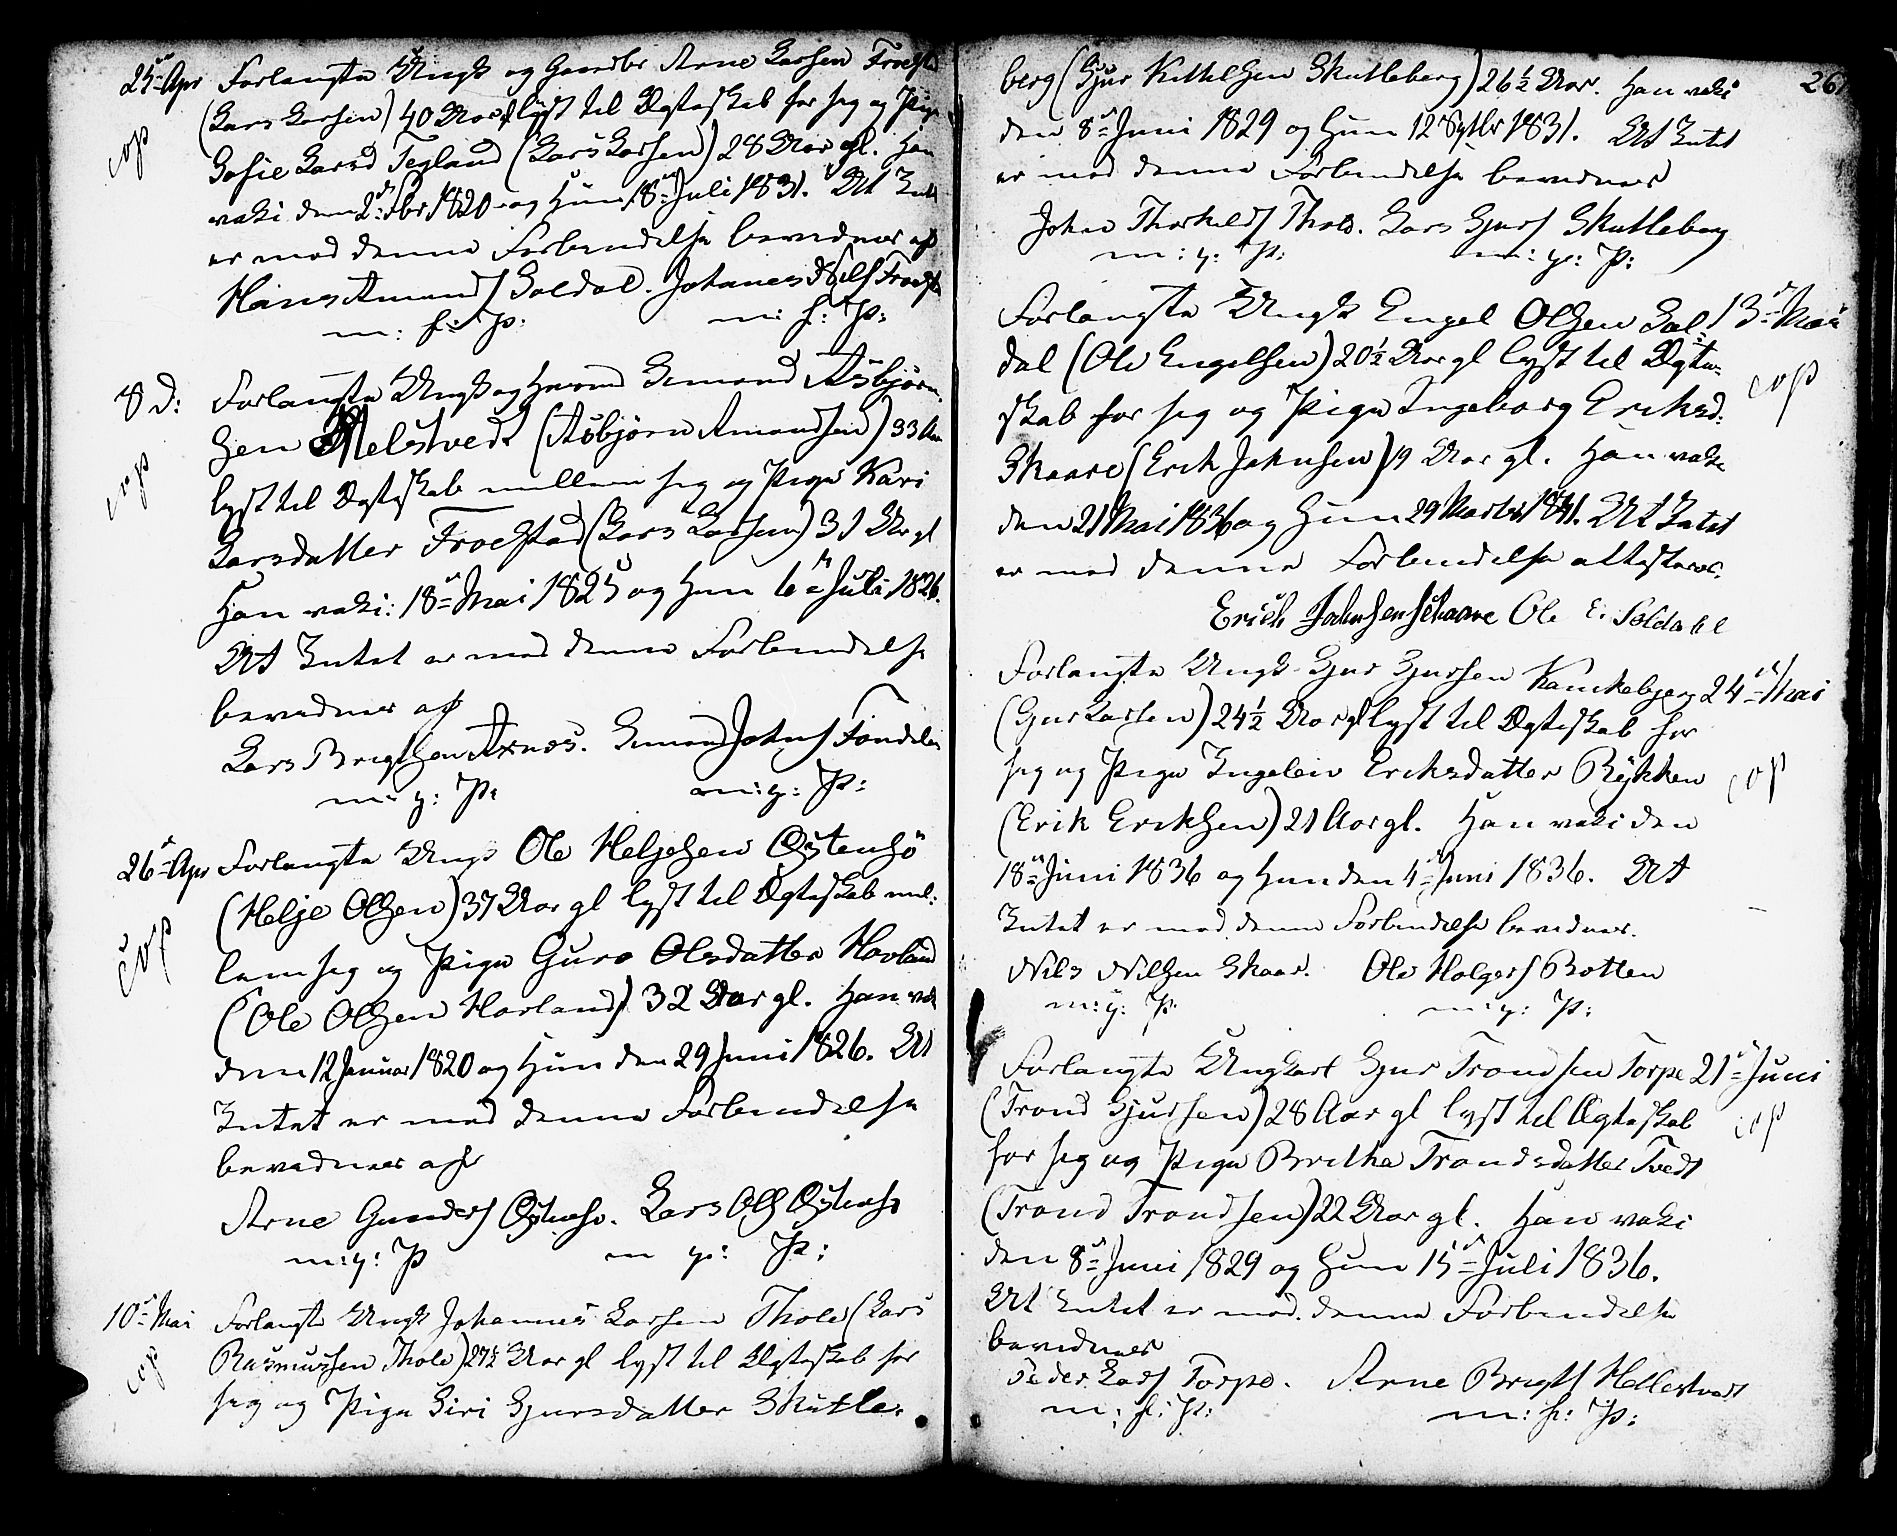 25de Apr Forlangte Ungk og Gaardbr Arne Larsen Trodst
(Lars Larsen) 40 Aar gl lyst til Ægteskab for sig og Pige
cop
Gosie Larsd Tegland (Lars Larsen) 28 Aar gl. Han
vaki den 2de Fbr 1820 og Hun 18de Juli 1831. At Intet
er mod denne Forbindelse bevidnes af
Hans Amunds Soldal. Johanes Nils
m: f: P: m: f: P:
8 d: Forlangte Ungk og Gmand Asbjørn-
sen Melstvedt (Asbjørn Amundsen) 33 Aar
cop
lyst til Ægteskab mellem sig og Pige Kari
Larsdatter Trodstad (Lars Larsen) 31 Aar gl
Han vaki: 18de Mai 1825 og Hun 6te Juli 1826.
At Intet er mod denne Forbindelse
bevidnes af
Lars Brigtsen Axnes. Johns
m: p: P: m: p: P:
26de Apr Forlangte Ungk Ole Heljesen Øystensø
(Helje Olsen) 37 Aar gl lyst til Ægteskab mel:
cop
lem sig og Pige Guro Olsdatter Havland
(Ole Olsen Havland) 32 Aar gl. Han vak
den 12 Januar 1820 og Hun den 29 Juni 1826. At
Intet er mod denne Forbindelse
bevidnes af
Arne Gunders Øystensø. Lars Ols Øystensø
m: p: P m p: P:
10de Mai Forlangte Ungk Johannes Larsen Thole (Lars
Rasmussen Thole) 27½ Aar gl lyst til Ægteskab for
cop
sig og Pige Siri Gjursdatter Skutle-
berg (Gjur Kittilsen Skutleberg) 26½ Aar. Han vaki 26
den 8de Juni 1829 og Hun 12 Sptbr 1831. At Intet
er mod denne Forbindelse bevidnes
Johan Thorkelds Thole. Lars Gjurs Skutleberg
m: p: P: m: p: P:
Forlangte Ungk Engel Olsen Sol- 13de Mai
dal (Ole Engelsen) 20½ Aar gl lyst til Ægte-
cop
skab for sig og Pige Ingeborg Eriksd.
Skaare (Erik Johnsen) 19 Aar gl. Han vaki
den 21 Mai 1836 og Hun 29 Marts 1841. At Intet
er mod denne Forbindelse attesterer.
Erich Johnsen Schaare Ole E. Soldahl
Forlangte Ungk Gjur Gjursen Kankebjerg 24de Mai
(Gjur Larsen) 24½ Aar gl lyst til Ægteskab for
sig og Pige Ingelein Eriksdatter Rykken
cop
(Erik Eriksen) 21 Aar gl. Han vaki den
18de Juni 1836 og Hun den 4de Juni 1836. At
Intet er mod denne Forbindelse bevidner.
Nils Nilsen Skaar. Ole Holgers Botten
m: p: P: m: p: P:
Forlangte Ungkarl Gjur Trondsen Torpe 21de Juni
(Trond Gjursen) 28 Aar gl lyst til Ægteskab
cop
for sig og Pige Britha Trondsdatter Tvedt
(Trond Trondsen) 22 Aar gl. Han vaki
den 8de Juni 1829 og Hun 15de Juli 1836.
At Intet er mod denne Forbindelse
bevidnes
Peder Lars Torpe. Arne Brigts Hellestvedt
m: f: P: m: f: P: